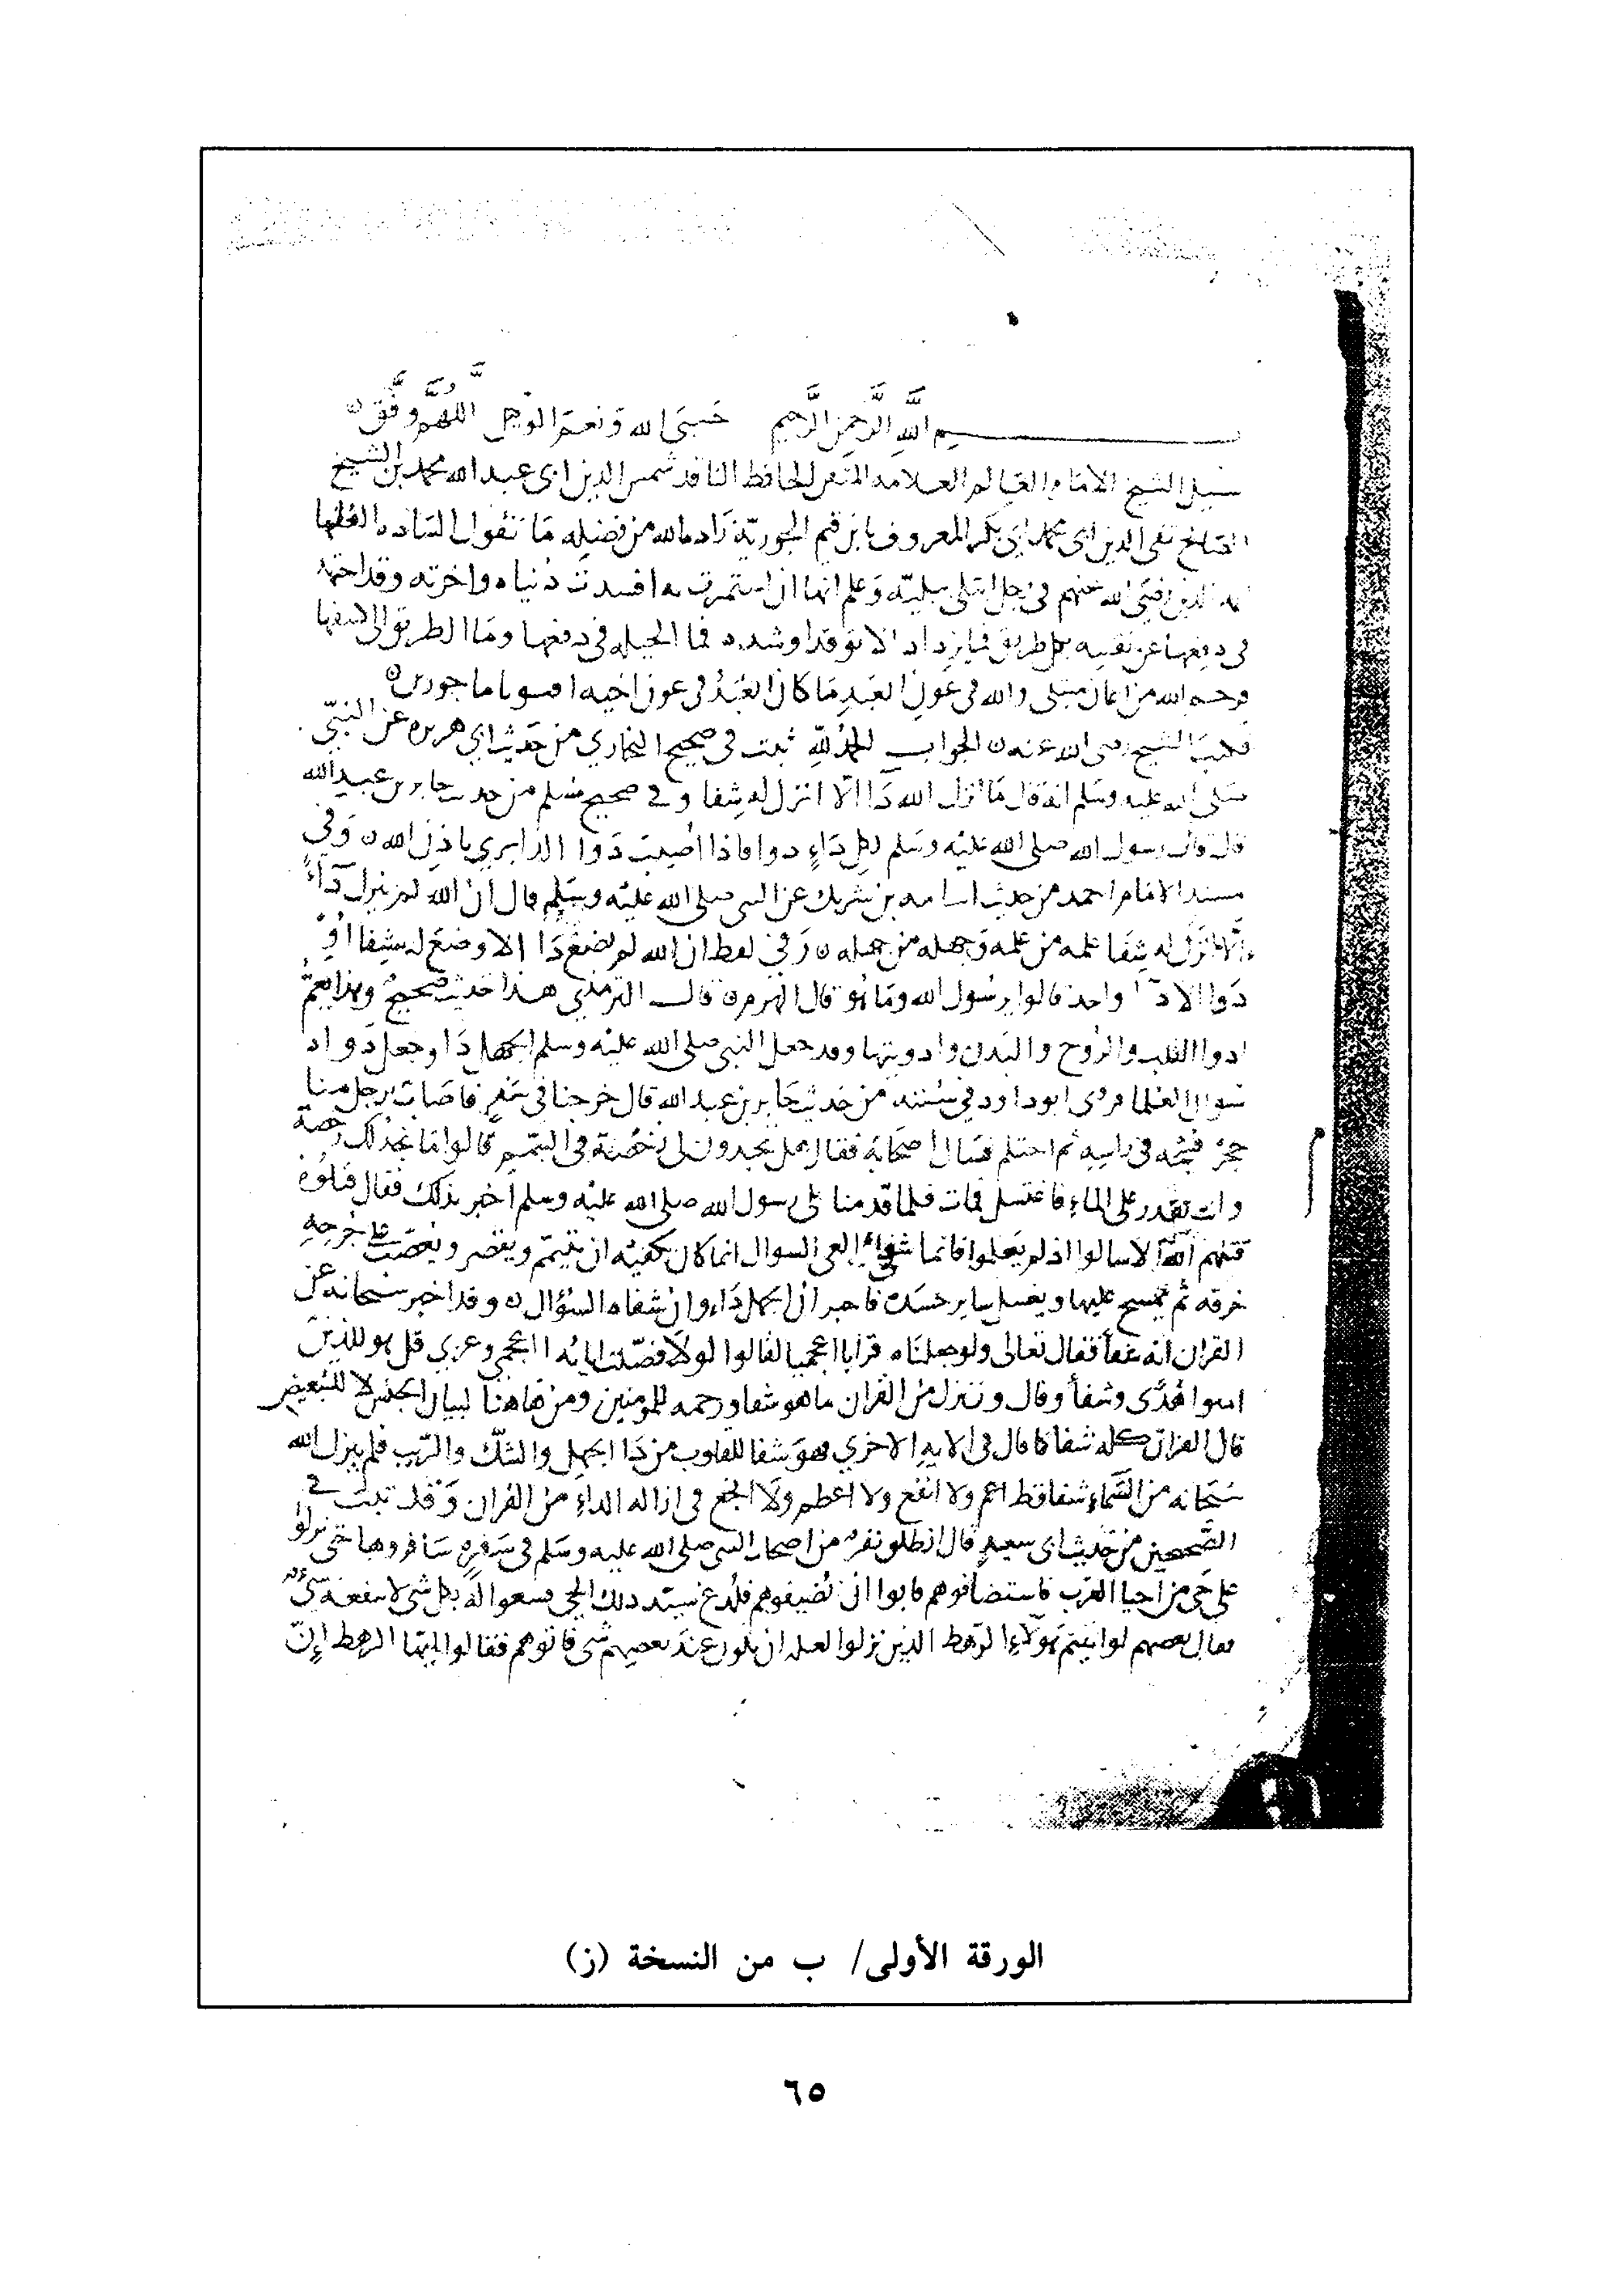 بسم اللَّه الرَّحمن الرَّحيم حَسبيَ الله وَنعمَ الوكيل اللهُمَّ وفّق
سيل الشيخ الامام العالم العلامه المتقن الحافظ الناقد شمس الدين ابى عبد الله محمد بن الشيخ
الصالح تقى الدين ابى بكر المعروف بابن قيم الجوزيّة زاده الله من فضله مَا تقول السّاده العلما
ايمه الدين رضى الله عنهم فى رجل ابتلى ببليّه وَعلم انها ان استمرت به افسدت دُنياه واخرته وقد اجتهد
فى دفعها عن نفسه بكل طريق فما يزداد الا توقدا وشده فما الحيله فى دفعها ومَا الطريق الى كشفها
فرحم الله من اعان مبتلى والله فى عَون العَبد مَا كان العَبْدُ فى عون اخيه افتونا ماجورين ه
فكتبَ الشيخ رضى الله عنه ه الجواب الحمدُ للّه ثبت فى صحيح البخاري من حَديث ابي هريره عن النبيّ
صَلى الله عليه وسَلم انه قال مَا انزل الله دَاا الّا انزل له شِفا وفى صحيح مُسلم من حديث جابر بن عبد الله
قال قال رسول الله صلى الله عَليْه وسَلم لكل دَاءٍ دوا فاذا اُصيبَ دَوا الدا برى باذن الله ه وَفى
مسند الامام احمد من حديث اسامه بن شريك عن النبى صلى الله عليْه وسَلم قال ان الله لم ينزل دَاءً
الّا انزَل له شِفَا علمه من علمه وَجهله من جهله ه وَفى لفظ ان الله لم يضع دَا الا وضعَ له شِفا اوْ
دَوا الا دآ واحد قالوا يرسُول الله ومَا هُو قال الهَرم ه قالــ الترمذى هـذا حَديث صَحيحٌ وهذا يعمُّ
ادوا القلب والرُوح والبَدن وادويتها وقد جعل النبى صلى الله عليْه وسلم الجَهل دَا وجعل دَواه
سُوال العُلما فروى ابو داود فى سُننه من حَديث جَابر بن عبد الله قال خرجنا فى سَفر فاصَاب رجل منا
حجرٌ فشجّه فى راسِه ثم احتلم فسَال اصحَابَه فقال هل تجدون لى رخصَة فى التيمّم قالوا مَا نجد لك رخصة
وانت تقدر على الماءِ فاغتسل فمات فلما قدمنا على رسول الله صلى الله عليْه وسلم اخبر بذلك فقال قتلوُه
قتلهم اللّه الا سالوا اذ لم يَعلموا فانما شفاء العى السوال انما كان يكفيْه ان يتيمّم ويعصر او يعصبَ على جُرحِهِ
خرقه ثم يمسح عليها ويغسل ساير جسَده فاخبر ان الجهل دَاء وان شفاه السُؤال ه وقد اخبر سُبحانه عن
القران انه شِفاً فقال تعالى ولو جعلنَاه قرانا اعجميا لقالوا لولا فصّلت اياته ااعجمى وعربي قل هو للذينَ
امنوا هُدًى وشفأ وقال وننزل مِن القران ما هو شفا ورحمه للمومنين ومن هَاهنا لبيان الجنس لا للتبعيض
قال القران كله شفا كما قال فى الايه الاخري فهوَ شفا للقلوب من دَا الجهل والشك والرّيب فلم ينزل الله
سُبحانه من السَّماءِ شفا قط اعم ولا انفع ولا اعظم ولَا انجع فى ازاله الداءِ من القران وَقد ثبت فى
الصَّحيحين من حَديث ابى سعيدٍ قال انطلق نفر من اصحاب النبى صلى الله عليه وسَلم فى سَفرهٍ سَافروها حتى نزلوُا
على حَى من احيا العَرب فاستضافوهم فابوا ان يُضيفوهم فلُدغ سَيّد ذلك الحى فسعوا له بكل شى لا ينفعه شىٌ
فقال بعضهم لو اتيتم هَولاءِ الرّهط الذين نزلوا لعله ان يكون عندَ بعضهم شى فاتوهم فقالوا يايّها الرهط إنّ
الورقة الأولى/ ب من النسخة (ز)
٦٥